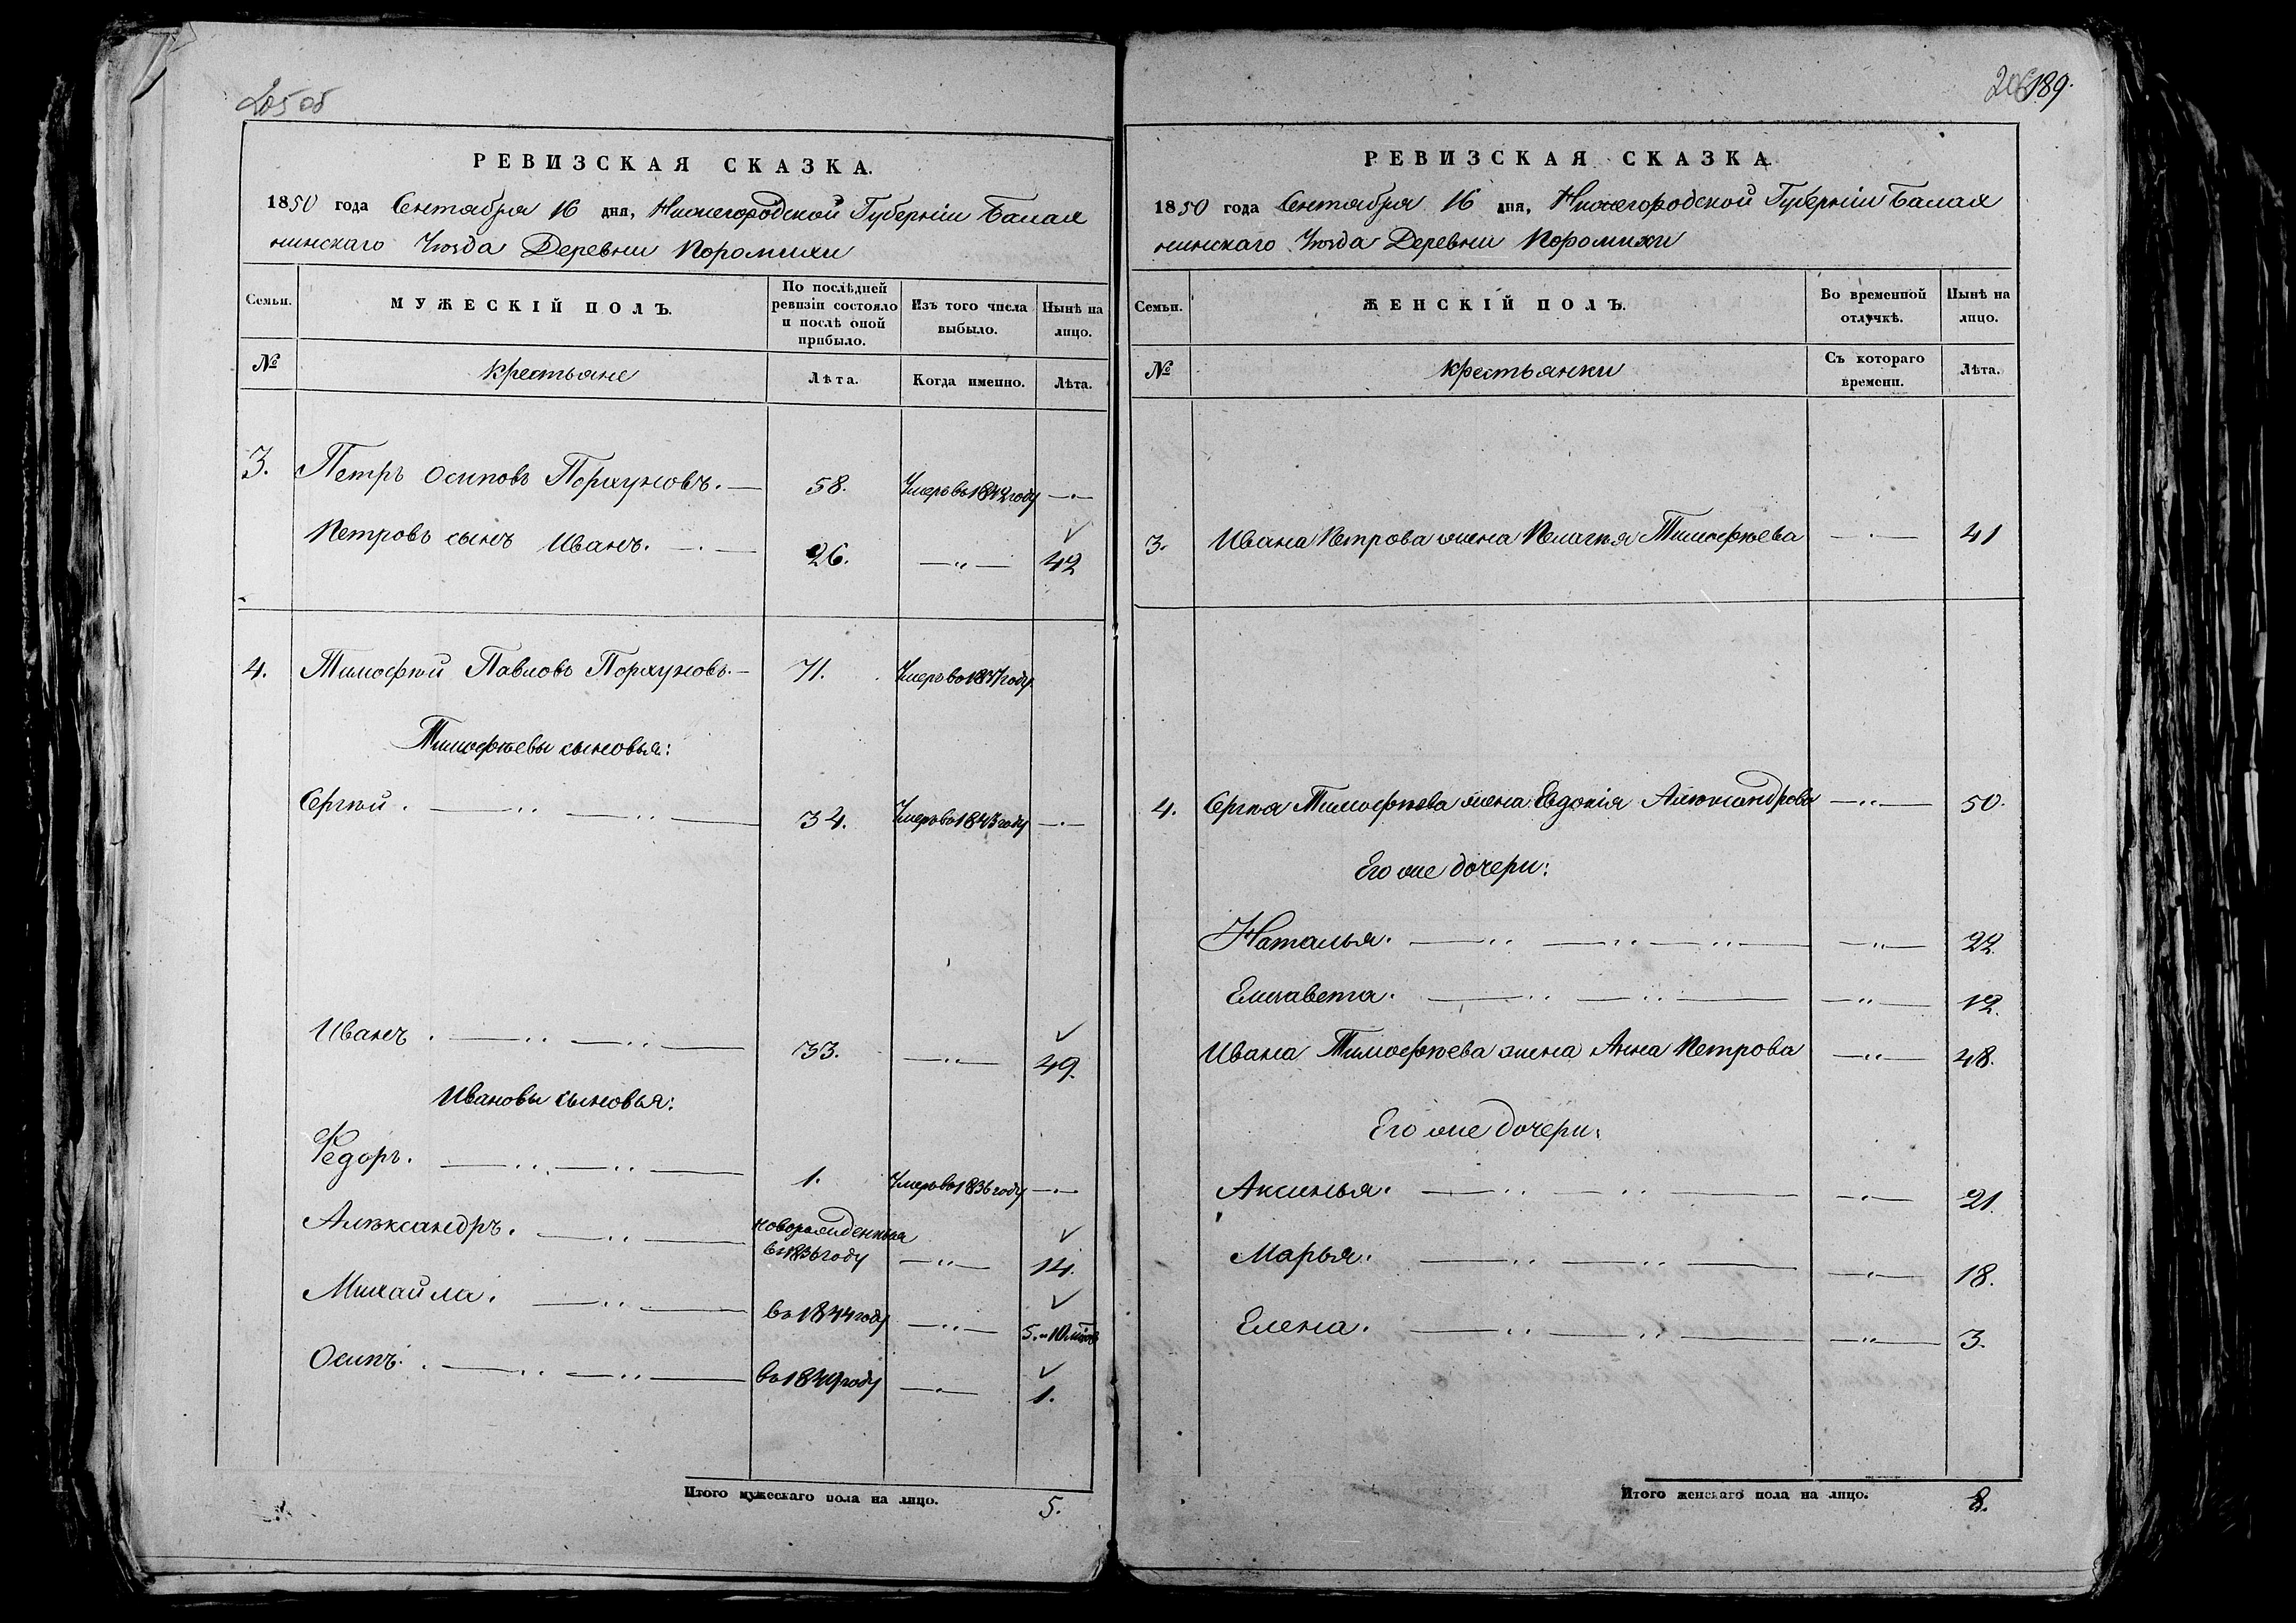 205 об
РЕВИЗСКАЯ СКАЗКА.
1850 года Сентября 16 дня, Нижегородской Губерніи Балах
нинскаго Уѣзда Деревни Поромихи
Семьи. МУЖЕСКІЙ ПОЛЪ. По послѣдней ревизіи состояло и послѣ оной прибыло. Изъ того числа выбыло. Нынѣ на лицо.
№ Крестьяне Лѣта. Когда именно. Лѣта.
3. Петръ Осиповъ Порхуновъ. 58. Умеръ въ 1842 году
Петровъ сынъ Иванъ. 26. 42
4. Тимофѣй Павловъ Порхуновъ. 71. Умеръ въ году
Тимофѣевы сыновья:
Сергѣй. 34. Умеръ въ 1843 году
Иванъ. 33. 49.
Ивановы сыновья:
Федоръ. 1. Умеръ въ 1836 году
Александръ. новорожденныя
въ 1836 году 14.
Михайла. въ 1844 году 5. и 10 мѣсѣ
Осипъ. въ 1849 году 1.
Итого мужескаго пола на лицо. 5.
206 189.
РЕВИЗСКАЯ СКАЗКА.
1850 года Сентября 16 дня, Нижегородской Губерніи Балах
нинскаго Уѣзда Деревни Поромихи
Семьи. ЖЕНСКІЙ ПОЛЪ. Во временной отлучкѣ. Нынѣ на лицо.
№ Крестьянки Съ котораго времени. Лѣта.
3. Ивана Петрова жена Пелагѣя Тимофѣева 41
4. Сергѣя Тимофѣева жена Евдокія Александрова 50.
Его же дочери:
Наталья. 22.
Елисавета. 12.
Ивана Тимофѣева жена Анна Петрова 48.
Его же дочери:
Аксинья. 21.
Марья. 18.
Елена. 3.
Итого женскаго пола на лицо. 8.